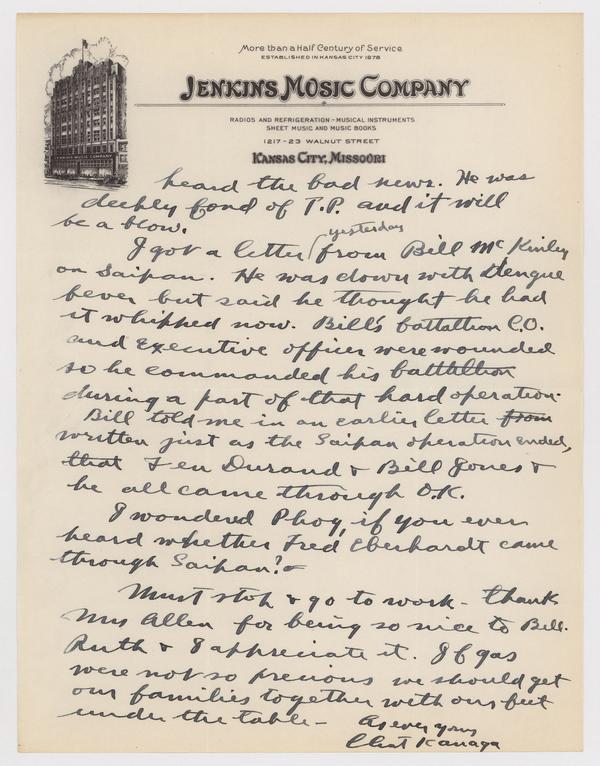 More than a Half Century of Service
ESTABLISHED IN KANSAS CITY 1878
JENKINS MUSIC COMPANY
RADIOS AND REFRIGERATION - MUSICAL INSTRUMENTS
SHEET MUSIC AND MUSIC BOOKS
1217-23 WALNUT STREET
KANSAS CITY, MISSOURI
JENKINS MUSIC COMPANY
heard the bad news. He was
deeply fond of T.P. and it will
be a blow.
yesterday
I got a letter from Bill McKinley
on Saipan. He was down with Dengue
fever but said he thought he had
it whipped now. Bill's battallion C.O.
and Executive officer were wounded
so he commanded his battallion
during a part of that hard operation.
Bill told me in an earlier letter from
written just as the Saipan operation ended,
that Fen Durand & Bill Jones &
he all came through O.K.
I wondered Phog, if you ever
heard whether Fred Eberhardt came
through Saipan?
Must stop & go to work - thank
Mrs Allen for being so nice to Bill.
Ruth & I appreciate it. If gas
were not so precious we should get
our families together with our feet
under the table -
As ever yours
Chet Kanaga